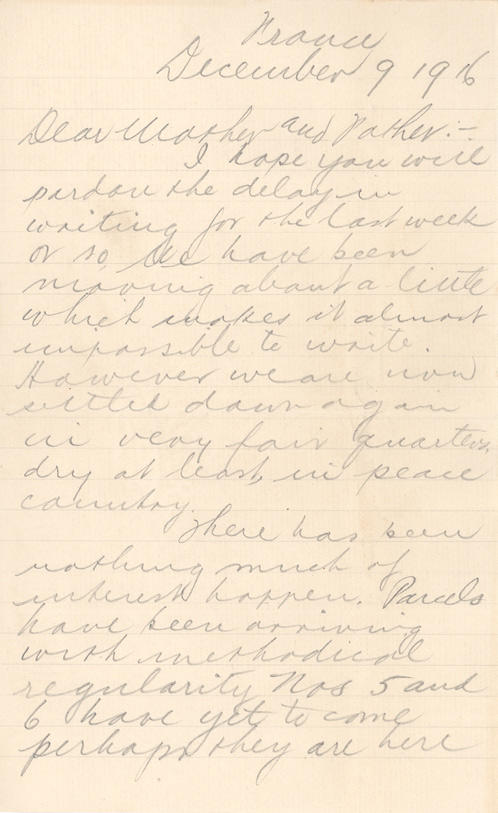 France
December 9 1916
Dear Mother and Father:-
I hope you will
pardon the delay in
writing for the last week
or so. We have been
moving about a little
which makes it almost
impossible to write.
However we are now
settled down again
in very fair quarters,
dry at least, in peace
country.
There has been
nothing much of
interest happen. Parcels
have been arriving
with methodical
regularity Nos 5 and
6 have yet to come
perhaps they are here